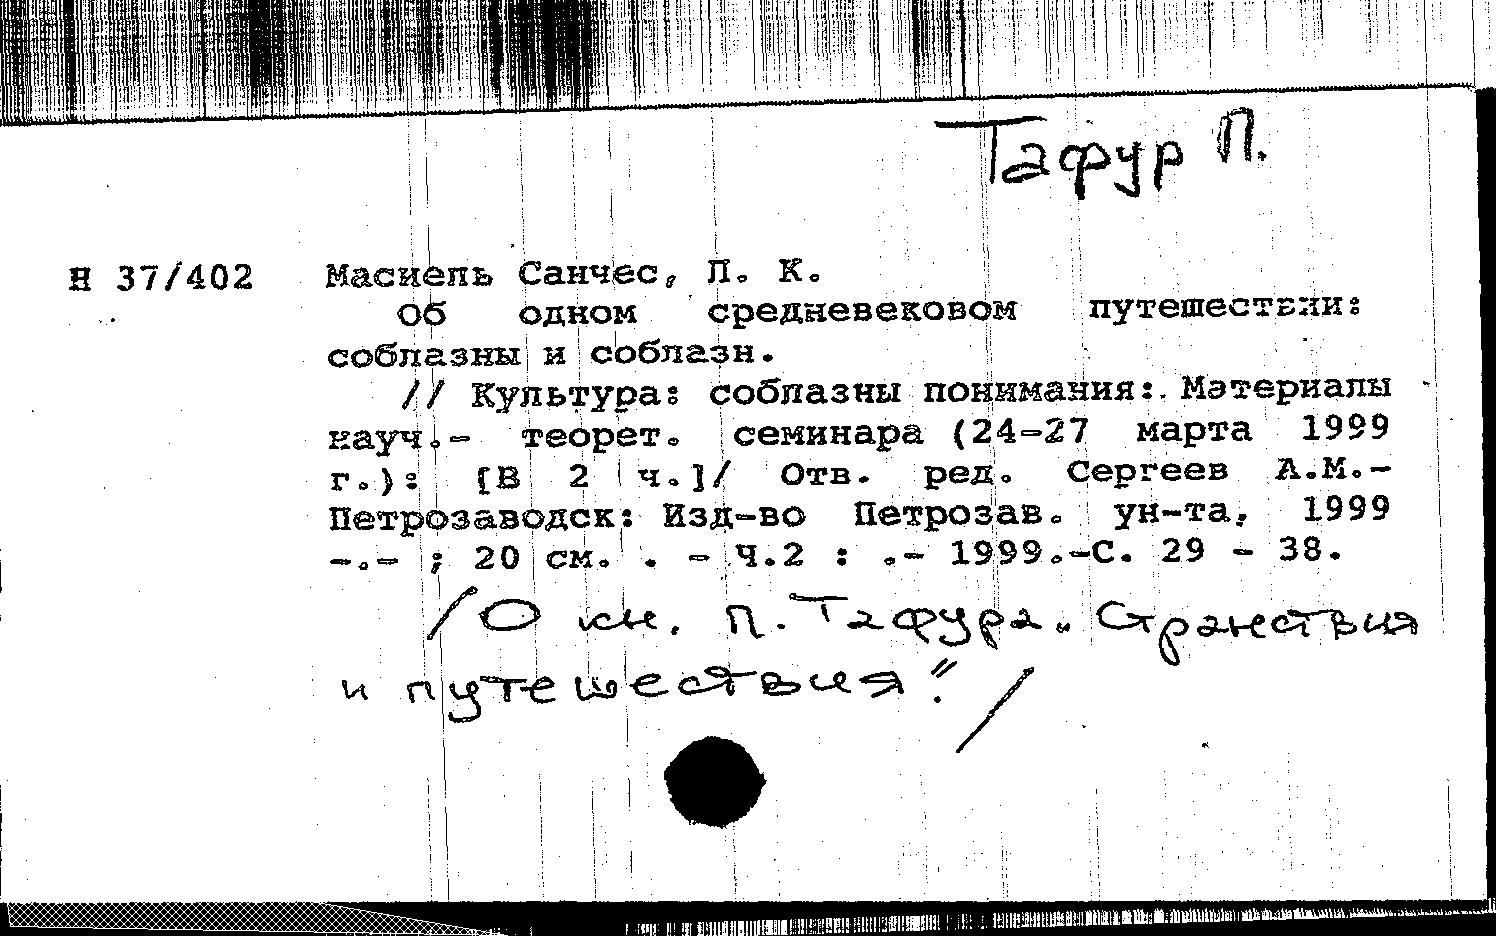 Тафур П.
Н 37/402 Масиель Санчес, Л. К.
Об одном средневековом путешествии:
соблазны и соблазн.
// Культура: соблазны понимания: Материалы
науч.- теорет. семинара (24-27 марта 1999
г.): [В 2 ч.]/ Отв. ред. Сергеев А.М.-
Петрозаводск: Изд-во Петрозав. ун-та, 1999
-.- ; 20 см. . - Ч.2 : .- 1999.-С. 29 - 38.
/О кн. П. Тафура „Странствия
и путешествия"./